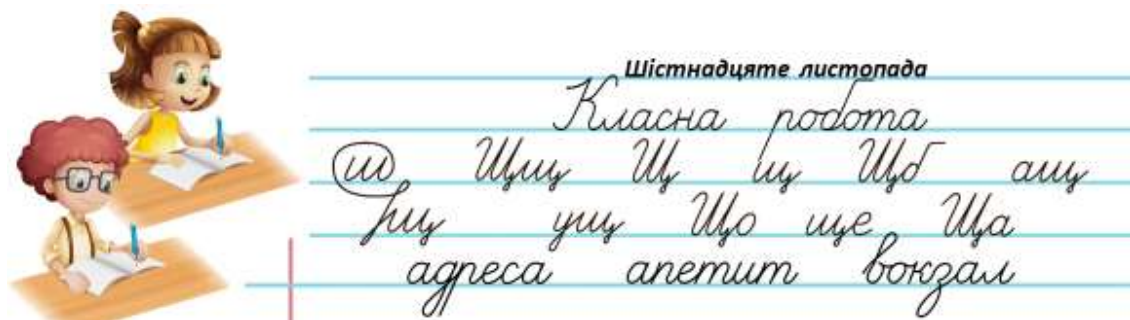 Шістнадцяте листопада
Класна робота
ш Щщ Щ щ Щб ащ
рщ ущ Що ще Ща
адреса апетит вокзал